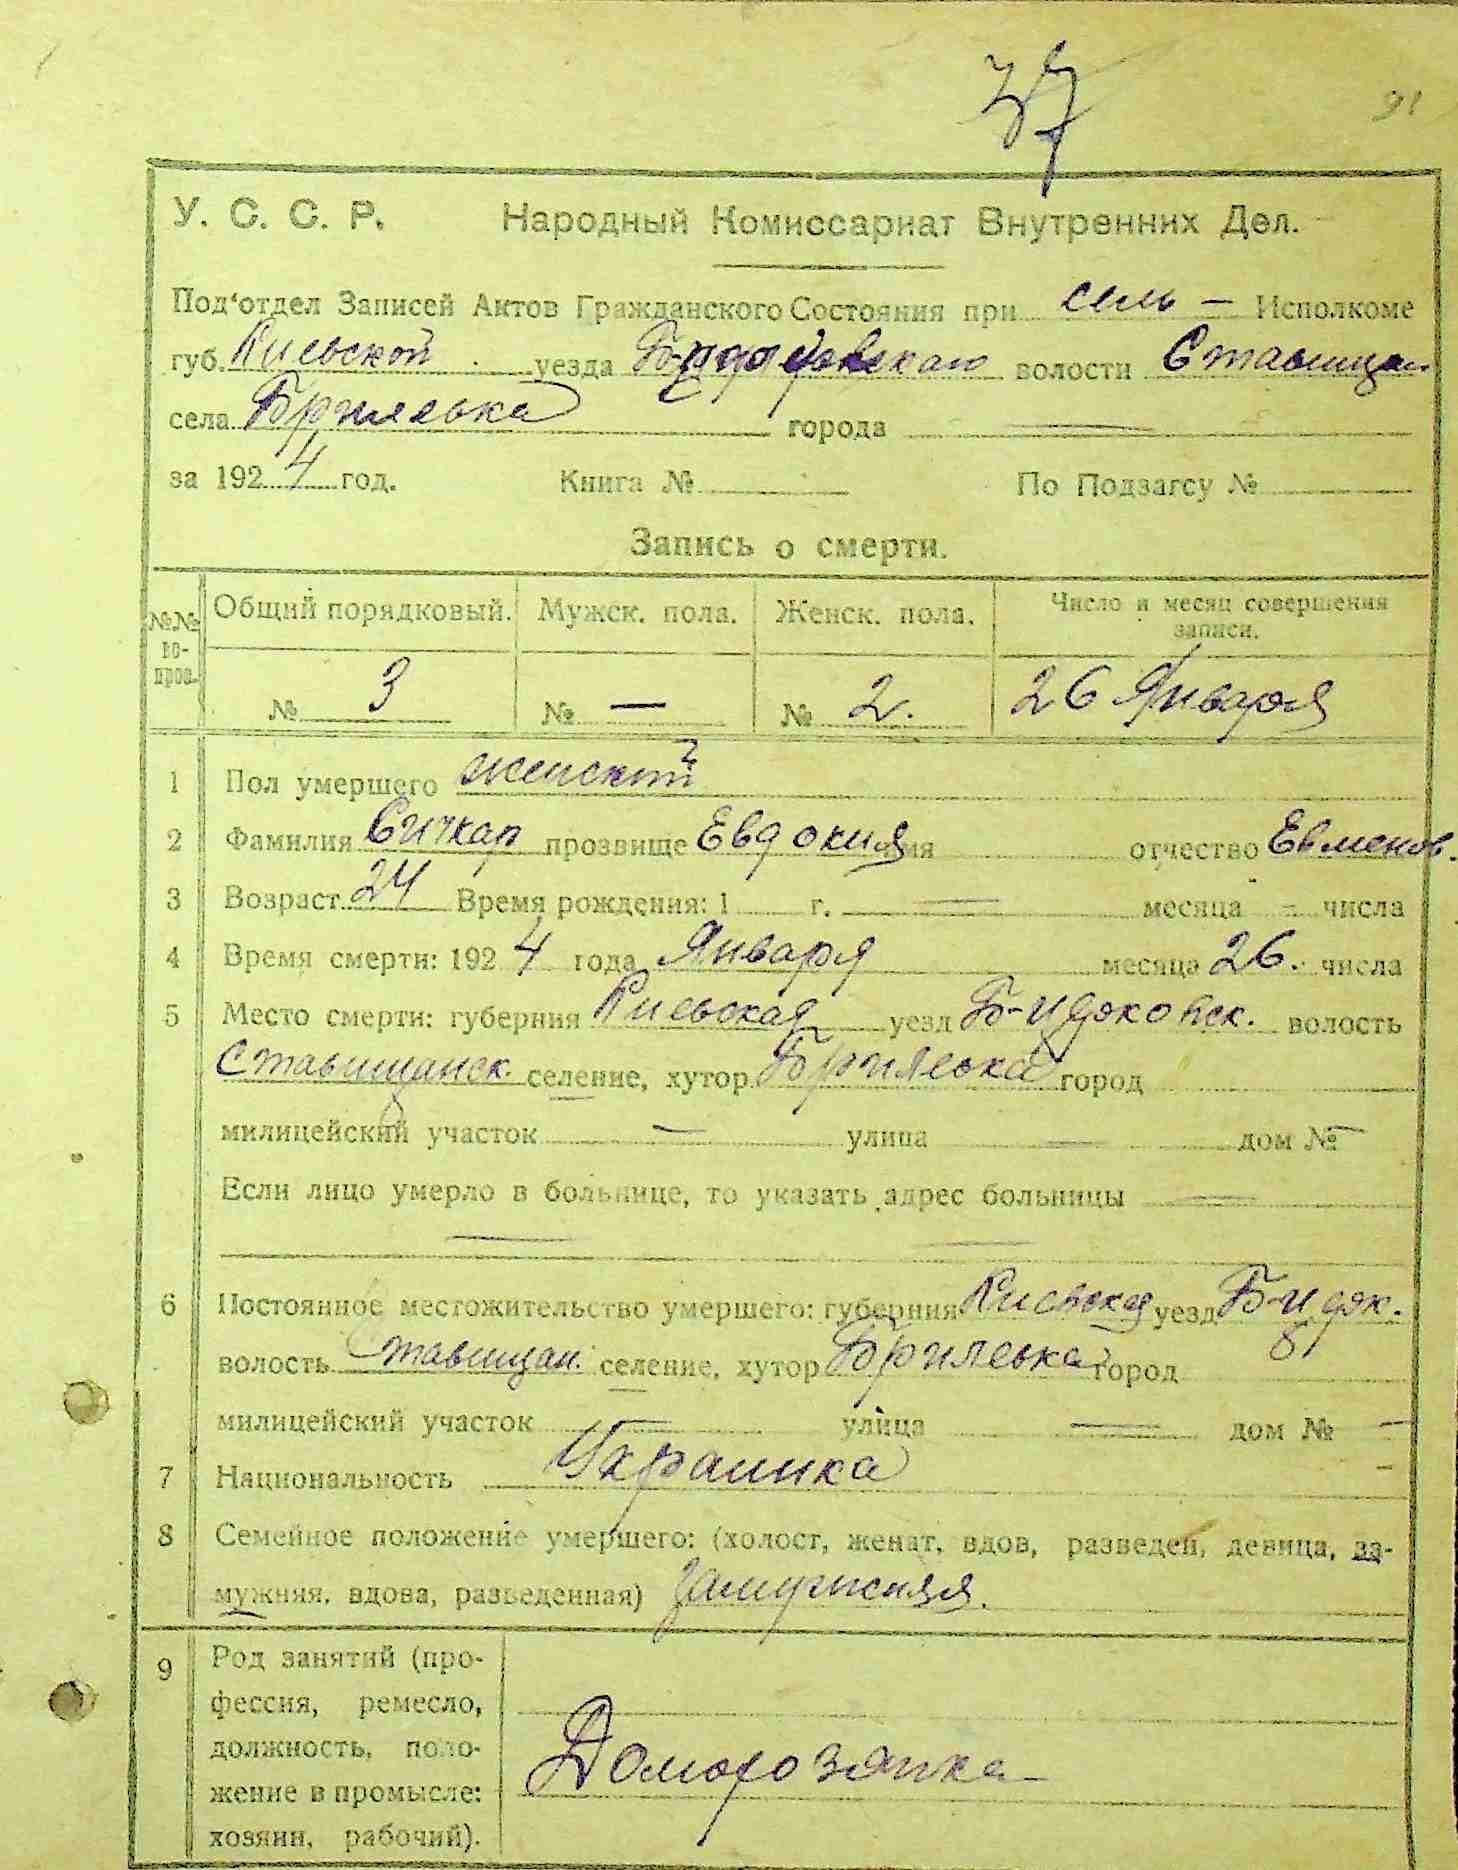 37
91
У. С. С. Р. Народный Комиссариат Внутренних Дел.
Под'отдел Записей Актов Гражданского Состояния при сель — Исполкоме
губ. Киевской уезда волости Ставищан
села Брилевка города —
за 1924 год. Книга № По Подзагсу №
Запись о смерти.
№№ вопрос. Общий порядковый. Мужск. пола. Женск. пола. Число и месяц совершения записи.
№ 3 № — № 2. 26 Января
1 Пол умершего женский
2 Фамилия Сичкар прозвище Евдокия имя отчество Евменов.
3 Возраст 24 Время рождения: 1 г. — месяца - числа
4 Время смерти: 1924 года Января месяца 26. числа
5 Место смерти: губерния Киевская уезд волость
Ставищанск. селение, хутор Брилевка город
милицейский участок — улица — дом № —
Если лицо умерло в больнице, то указать адрес больницы —
— —
6 Постоянное местожительство умершего: губерния Киевская уезд
волость Ставищан. селение, хутор Брилевка город
милицейский участок — улица — дом № —
7 Национальность Украинка -
8 Семейное положение умершего: (холост, женат, вдов, разведен, девица, за-
мужняя, вдова, разведенная) замужняя.
9 Род занятий (про-
фессия, ремесло,
должность, поло-
жение в промысле:
хозяин, рабочий).